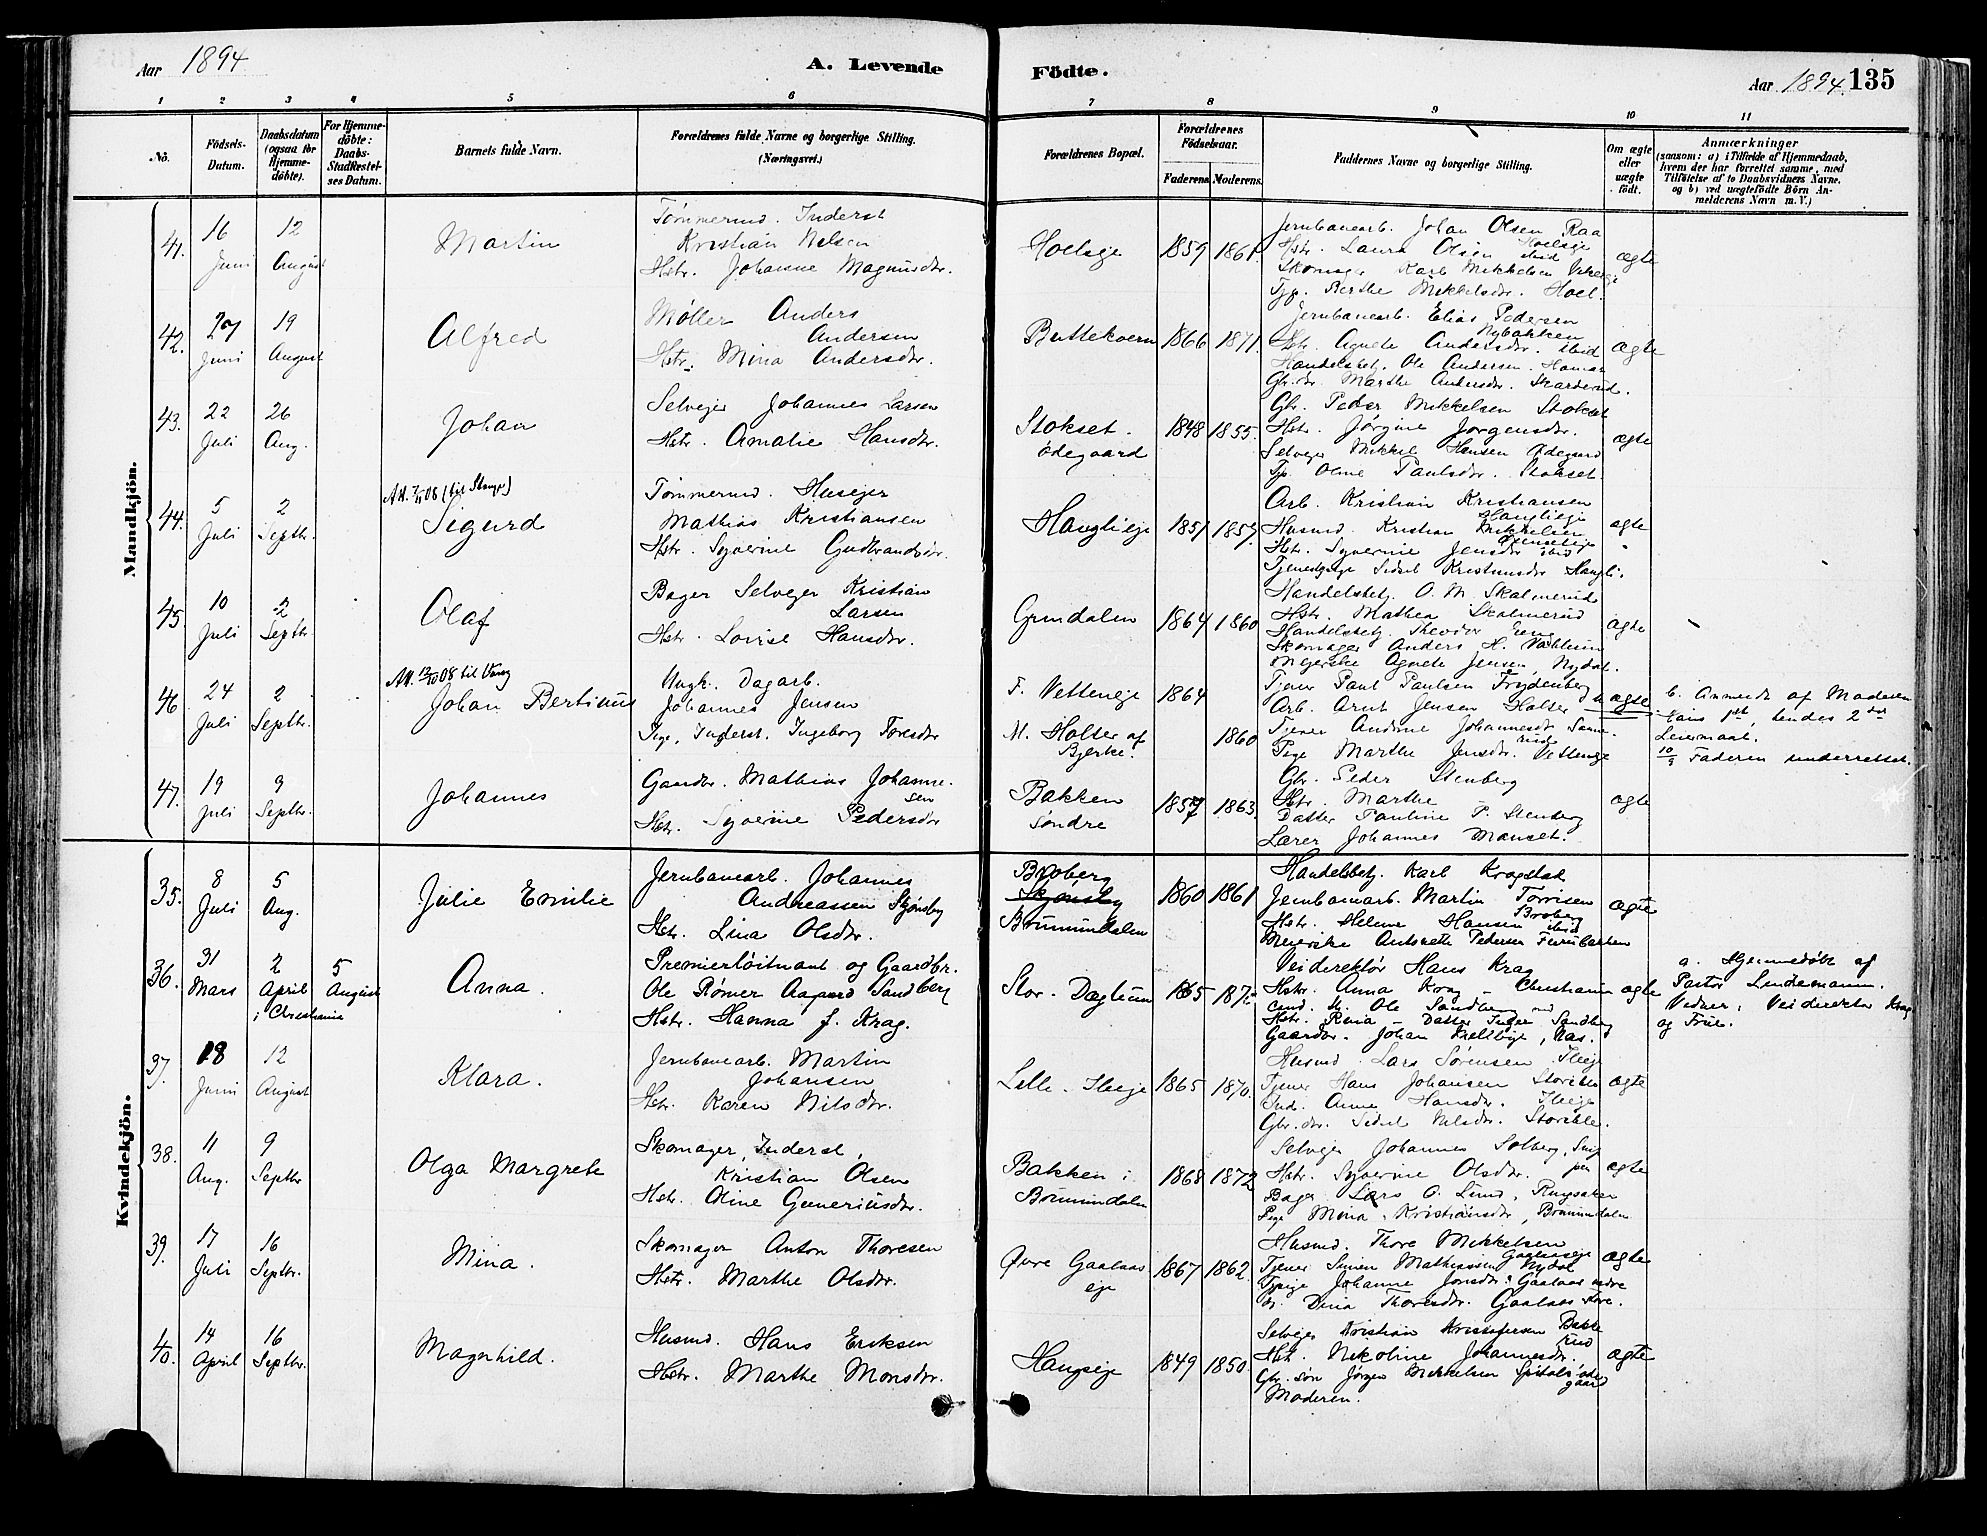 Aar 1894
A. Levende
Födte.
Aar 1894. 135
1 2 3 4 5 6 7 8 9 10 11
No.
Födsels-
Datum.
Daabsdatum
(ogsaa for
Hjemme-
döbte).
For Hjemme-
döbte:
Daabs-
Stadfæstel-
ses Datum.
Barnets fulde Navn.
Forældrenes fulde Navne og borgerlige Stilling.
(Næringsvei.)
Forældrenes Bopæl.
Forældrenes
Födselsaar.
Faderens. Moderens.
Faddernes Navne og borgerlige Stilling.
Om ægte
eller
uægte
født.
Anmærkninger
(saasom: a) i Tilfælde af Hjemmedaab,
hvem der har forrettet samme, med
Tilføielse af to Daabsvidners Navne,
og b) ved uægtefödte Börn An-
melderens Navn m. V.)
Mandkjön.
41.
16
Juni
12
August
Martin
Tømmermd. Inderst
Kristian Nilsen
Hstr. Johanne Magnusdtr.
Hoelseje
1859 1861.
Jernbanearb. Johan Olsen Raa
Hstr. Laura Olsen Hoelseje
Skomager Karl Mikkelsen
Tjp. Berthe Mikkelsdtr. Hoel.
ægte
42.
27
Juni
19
August
Alfred
Møller Anders
Andersen
Hstr. Mina Andersdtr.
Buttekvern
1866 1871.
Jernbanearb. Elias Pedersen
Nybakken
Hstr. Agnete Andersdtr. ibid
Handelsbetj. Ole Andersen. Hamar
Gbr.dtr. Marthe Andersdtr. Skarderud.
ægte
43.
22
Juli
26
Aug.
Johan
Selvejer Johannes Larsen
Hstr. Amalie Hansdtr.
Stokset.
ødegaard
1848 1855.
Gbr. Peder Mikkelsen Stokset
Hstr. Jørgine Jørgensdtr.
Selvejer Mikkel Hansen Ødegaard
Tjp. Oline Paulsdtr. Stokset.
ægte
44.
5
Juli
2
Septbr.
Att. 7/11 08 (til Stange)
Sigurd
Tømmermd. Husejer
Mathias Kristiansen
Hstr. Syverine Gudbrandsdtr.
Hauglieje
1851 1857.
Arb. Kristian Kristiansen
Hauglieje
Husmd. Kristian Mikkelsen
Hstr. Syverine Jensdtr ibid
Tjenestpige Sidsel Kristiansdtr Haugli.
ægte
45.
10
Juli
2
Septbr.
Olaf
Bager Selvejer Kristian
Larsen
Hstr. Lovise Hansdtr.
Grundalen
1864 1860
Handelsbetj. O. M. Skalmerud
Hstr. Mathea Skalmerud
Handelsbetj. Theodor Eeng
Skomager Anders H.
Mejerske Agnete Jensen, Nydal.
ægte
46
24
Juli
2
Septbr.
Att. 12/10 08 til Vang
Johan Bertinius
Ungk. Dagarb.
Johannes Jensen
Pige, Inderst. Ingeborg Toresdtr
F. Vetteneje
M. Holser af
Bjerke.
1864
1860
Tjener Paul Paulsen Frydenberg
Arb. Arnt Jensen Holser
Tjener Andrine Johannesdtr Sanne-
rud
Pige Marthe Jensdtr. Vetteneje
uægte
b. Anmeldt af Moderen
Hans 1ste, hendes 2det
Leiermaal.
10/9 Faderen underrettet.
47.
19
Juli
9
Septbr.
Johannes
Gaardbr. Mathias Johanne-
sen
Hstr. Syverine Pedersdtr
Bakken
Søndre
1857 1863.
Gbr. Peder Stenberg
Hstr. Marthe
Datter Pauline P. Stenberg
Lærer Johannes Mauset.
ægte
Kvindekjön.
35.
8
Juli
5
Aug.
Julie Emilie
Jernbanearb. Johannes
Andreassen Skjønsby
Hstr. Lina Olsdtr.
Broberg
Skjønsby
Brumundalen
1860 1861
Handelsbetj. Karl Kragstad
Jernbanearb. Martin Torrisen
Broberg
Hstr. Helene Hansen ibid
Meierske Antonette Pedersen Furubakken
ægte
36.
31
Mars
2
April
i Christiania
5
August
Anna.
Premierløitnant og Gaardbr.
Ole Rømer Aagaard Sandberg
Hstr. Hanna f. Krag.
Stor-Dæhlum
1865 1872
Veidirektør Hans Krag
Hstr. Anna Krag - Christiania
cand. M. Ole Sandberg med
Hstr. Rina - Datter Inger Sandberg
Gaardbr. Johan Mellbye, Næs.
ægte
a. Hjemmedøbt af
Pastor Lindemann.
Vidner: Veidirektør Krag
og Frue.
37.
18
Juni
12
August
Klara.
Jernbanearb. Martin
Johansen
Hstr. Karen Nilsdtr.
Lille-Ileeje
1865 1870.
Husmd. Lars Sørensen Ileeje
Tjener Hans Johansen Storihle
Ind. Anne Hansdtr. Ileeje
Gbr.dtr. Sidsel Nilsdtr. Storihle.
ægte
38.
11
Aug.
9
Septbr
Olga Margrete
Skomager, Inderst,
Kristian Olsen
Hstr. Oline Guneriusdtr.
Bakken i
Brumundalen
1868 1872
Selvejer Johannes Solberg,
Hstr. Syverine Olsdtr.
Bager Lars O. Lund, Ringsaker
Pige Mina Kristiansdtr, Brumundalen
ægte
39.
17
Juli
16
Septbr.
Mina.
Skomager Anton Thoresen
Hstr. Marthe Olsdtr.
Øvre Gaalaas
eje
1867 1862.
Husmd. Thore Mikkelsen
Gaalaaseje
Tjener Simen Mathiassen Nydal
Tjpige Johanne Jonsdtr. Gaalaas nedre
Dina Thoresdtr. Gaalaas øvre.
ægte
40.
14
April
16
Septbr.
Magnhild.
Husmd. Hans Eriksen
Hstr. Marthe Monsdtr.
Haugseje
1849 1850.
Selvejer Kristian Kristofersen Bakke
rud
Hstr. Nikoline Johannesdtr.
Gbr. søn Jørgen Mikkelsen Spitalsøde
gaard
Moderen.
ægte